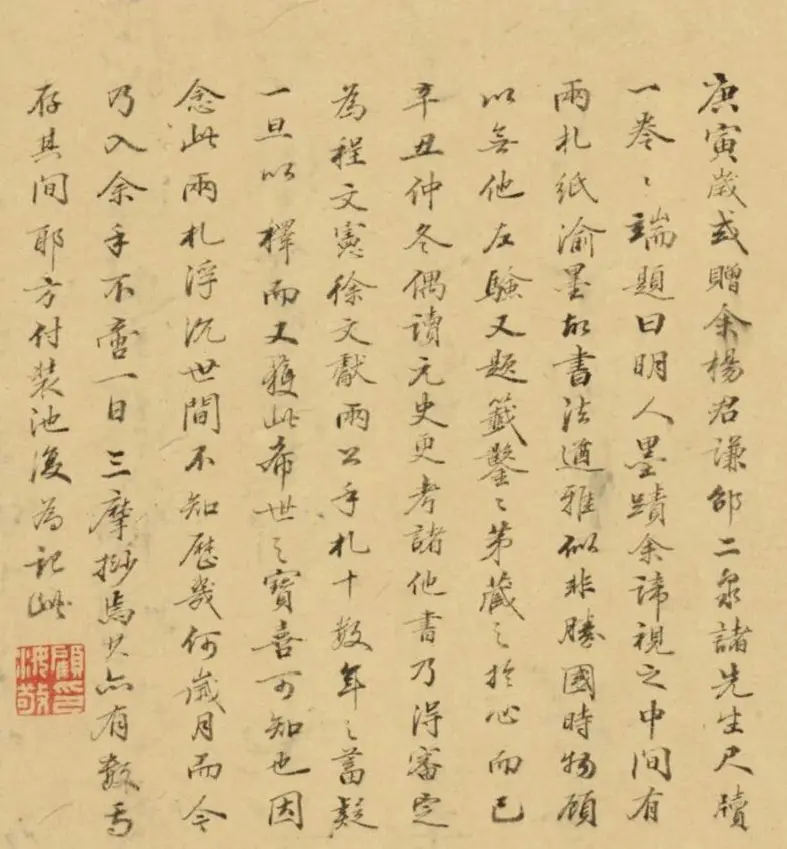 庚寅歲或贈余楊君謙邵二泉諸先生尺牘
一卷〻端題曰明人墨蹟余諦視之中間有
兩札紙渝墨故書法遒雅似非勝國時物顧
以無他左驗又題籤鑿〻第藏之於心而已
辛丑仲冬偶讀元史更考諸他書乃得審定
為程文憲徐文獻兩公手札十數年之蓄疑
一旦以釋而又獲此希世之寶喜可知也因
念此兩札浮沉世間不知歷幾何歲月而今
乃入余手不啻一日三摩挱焉其亦有數焉
存其間耶方付裝池復為記此